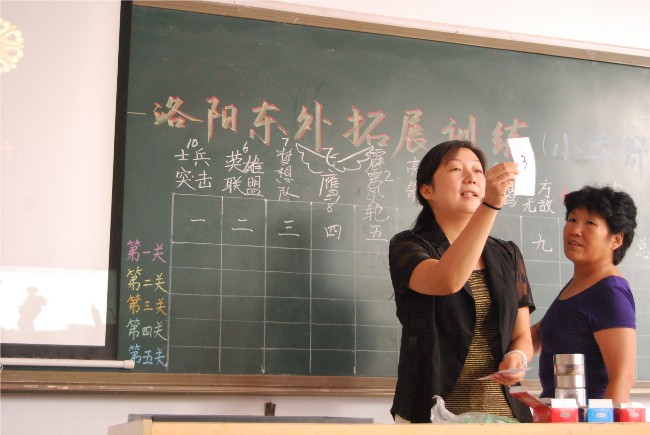 洛阳东外拓展训练(小
10 6 7
士兵 英雄 梦想队 飞雁 霹雳火轮 无敌
突击 联盟
8 2
一 二 三 四 五 九
3
第一关 总
第二关
第三关
第四关
第五关